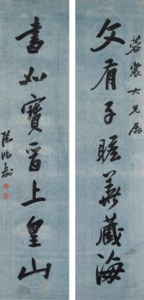 若農大兄屬
文有子瞻華藏海
書如寶晉上皇山
陳